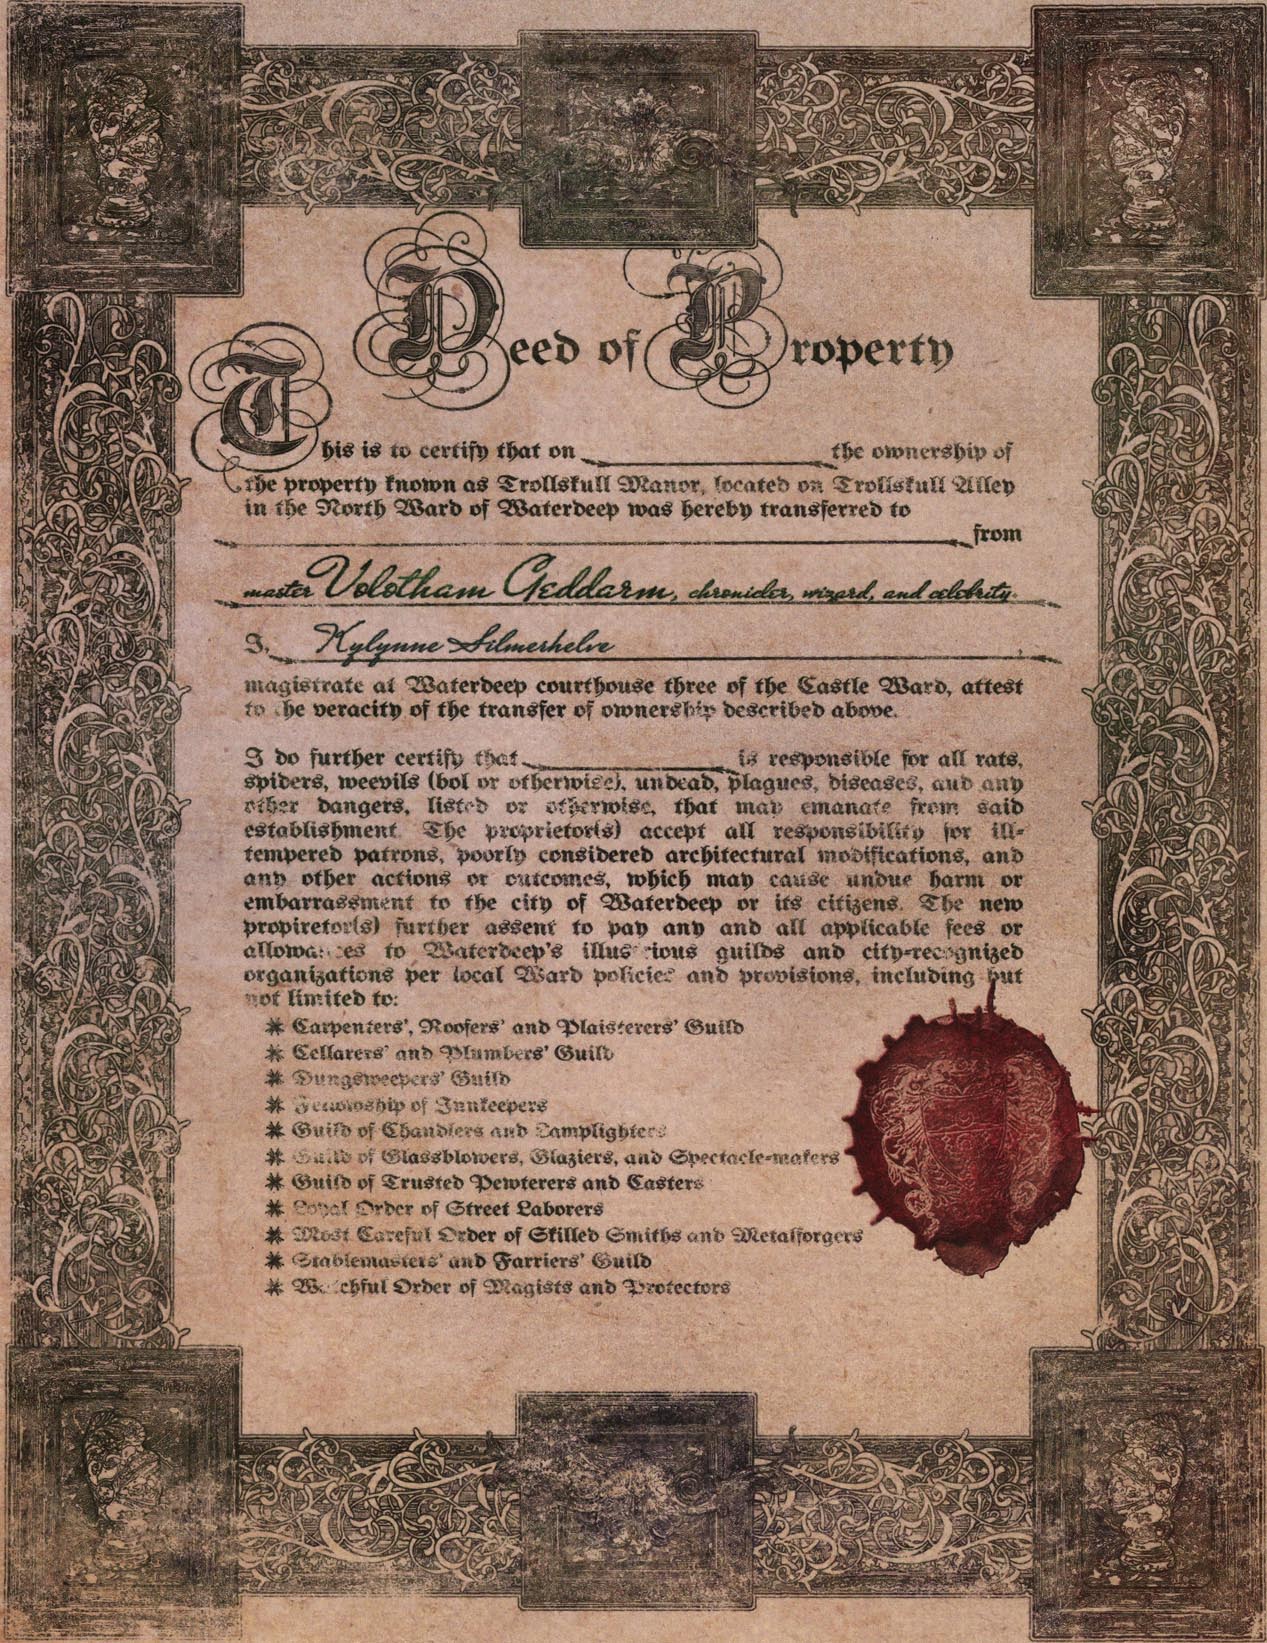 Deed of Property
This is to certify that on the ownership of
the property known as Trollskull Manor, located on Trollskull Alley
in the North Ward of Waterdeep was hereby transferred to
from
master Volotham Geddarm, chronicler, wizard, and celebrity.
I, Kylynne Silmerhelve,
magistrate at Waterdeep courthouse three of the Castle Ward, attest
to the veracity of the transfer of ownership described above.
I do further certify that is responsible for all rats,
spiders, weevils (bol or otherwise), undead, plagues, diseases, and any
other dangers, listed or otherwise, that may emanate from said
establishment. The proprietor(s) accept all responsibility for ill-
tempered patrons, poorly considered architectural modifications, and
any other actions or outcomes, which may cause undue harm or
embarrassment to the city of Waterdeep or its citizens. The new
propiretor(s) further assent to pay any and all applicable fees or
allowances to Waterdeep's illustrious guilds and city-recognized
organizations per local Ward policies and provisions, including but
not limited to:
* Carpenters', Roofers' and Plaisterers' Guild
* Cellarers' and Plumbers' Guild
* Dungsweepers' Guild
* Fellowship of Innkeepers
* Guild of Chandlers and Lamplighters
* Guild of Glassblowers, Glaziers, and Spectacle-makers
* Guild of Trusted Pewterers and Casters
* Loyal Order of Street Laborers
* Most Careful Order of Skilled Smiths and Metalforgers
* Stablemasters' and Farriers' Guild
* Watchful Order of Magists and Protectors